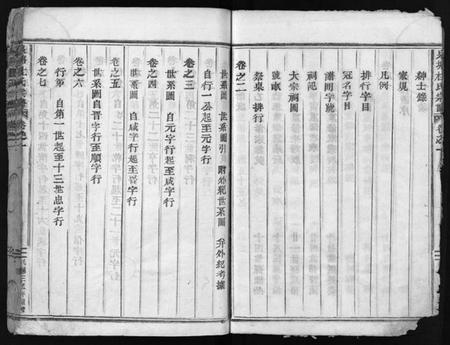 紳士錄
家規
凡例
排行字目
冠名字目
藩昭字號
大宗祠圖
祠祀
祭桌 排行
卷之二
世系圖 世系圖引 附始祀世系圖 弁外紀考據
自行一公起至元字行
卷之三
世系圖 自元字行起至咸字行
卷之四
世系圖 自咸字行起至晋字行
卷之五
世系圖自晋字行至順字行
卷之六
行第 自第一世起至十三世忠字行
卷之七